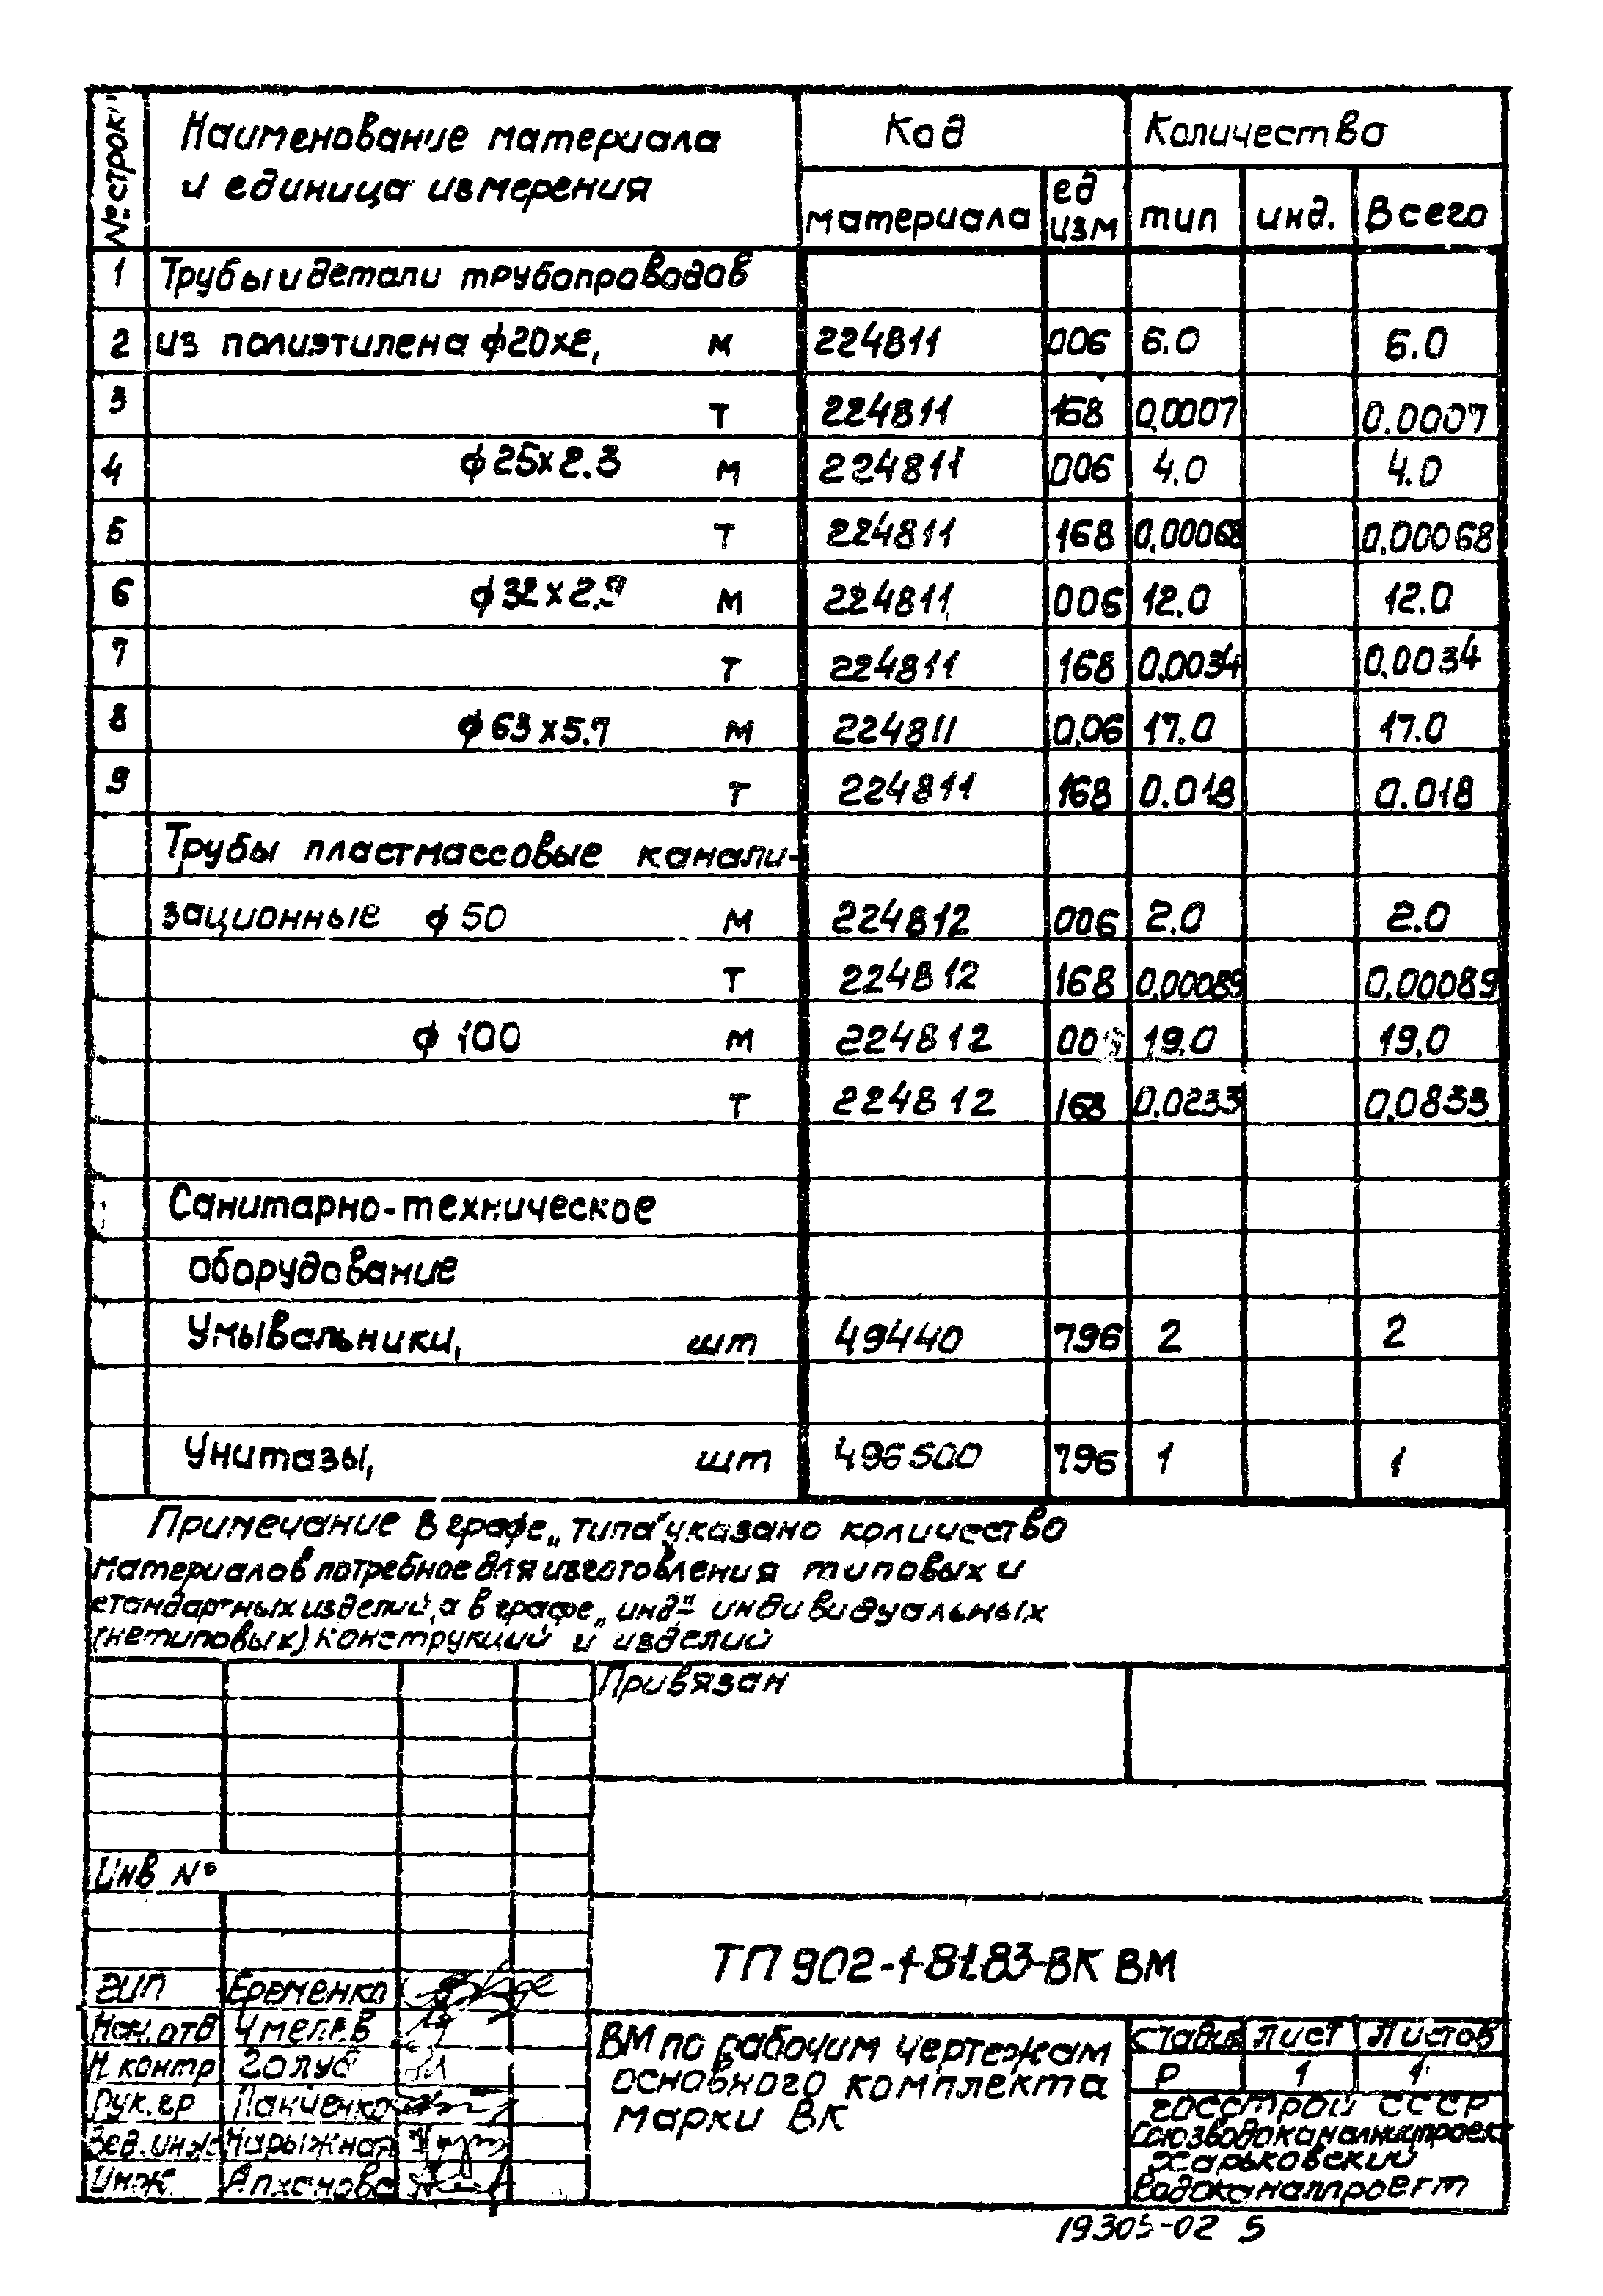 № строк Наименование материала Код Количество
и единица измерения
материала ед изм тип инд. Всего
1 Трубы и детали трубопроводов
2 из полиэтилена ф20x2, м 224811 006 6.0 6.0
3 т 224811 168 0.0007 0.0007
4 ф25x2.3 м 224811 006 4.0 4.0
5 т 224811 168 0.00068 0.00068
6 ф32x2.9 м 224811 006 12.0 12.0
7 т 224811 168 0.0034 0.0034
8 ф63x5.7 м 224811 0.06 17.0 17.0
9 т 224811 168 0.018 0.018
Трубы пластмассовые канали-
зационные ф50 м 224812 006 2.0 2.0
т 224812 168 0.00089 0.00089
ф 100 м 224812 006 19.0 19.0
т 224812 168 0.0233 0.0833
Санитарно-техническое
оборудование
Умывальники, шт 49440 796 2 2
Унитазы, шт 496500 796 1 1
Примечание в графе „типа" указано количество
материалов потребное для изготовления типовых и
стандартных изделий, а в графе „инд" индивидуальных
(нетиповых) конструкций и изделий
Привязан
Инв №
ТП 902-1-81.83-ВК ВМ
ГИП Еременко
Нач.отв Чмелев
Н.контр Голуб
Рук.гр Панченко
Вед.инж Нарыжная
Инж Алханова
ВМ по рабочим чертежам
основного комплекта
марки ВК
стадия лист листов
Р 1 1
госстрой СССР
Союзводоканалниипроект
Харьковский
водоканалпроект
19305-02 5